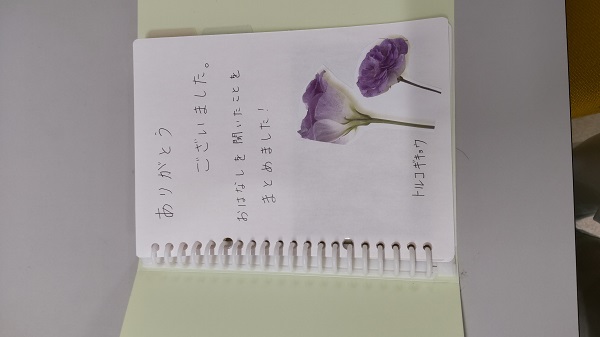 ありがとう
ございました。
おはなしを聞いたことを
まとめました!
トルコギキョウ